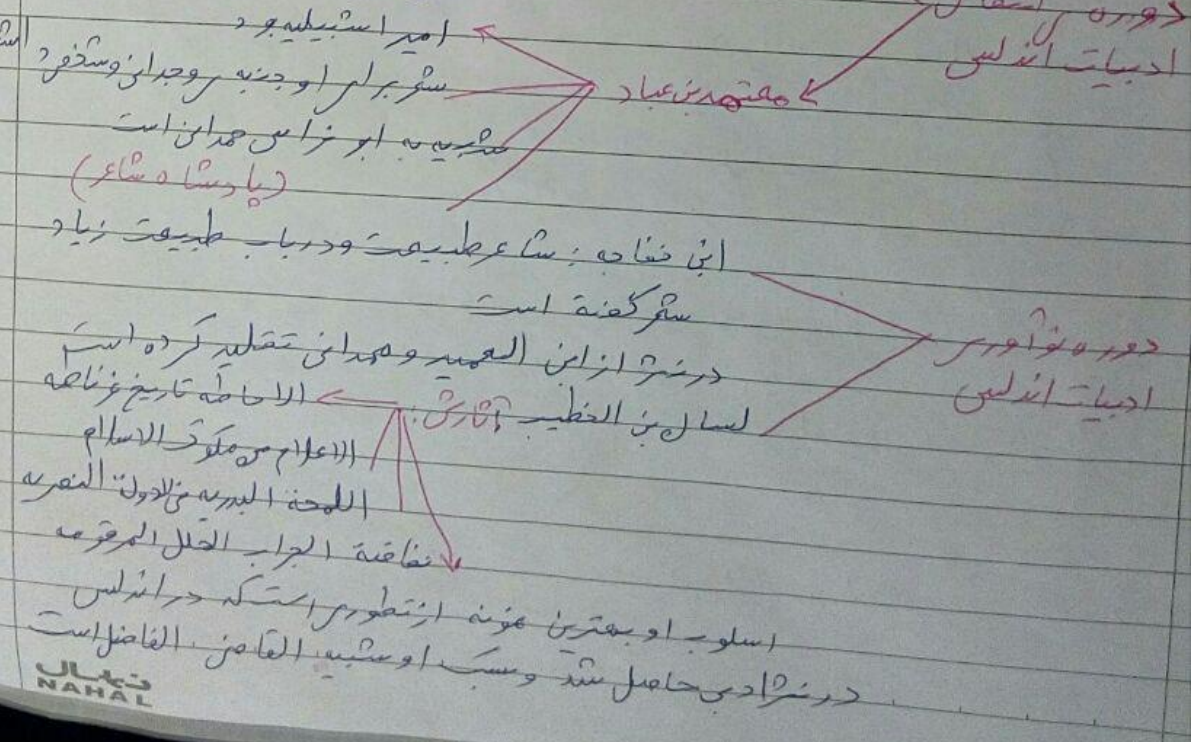 دوره ی
ادبیات اندلس
معتمد بن عباد
امیر استبیلیه بود
شعر برای او جنبه ی وجدانی و شخصی
شبیه به ابو فراس حمدانی است
(پادشاه شاعر)
دوره نوآوری
ادبیات اندلس
ابن خفاجه : شاعر طبیعت و درباب طبیعت زیاد
شعر گفته است
در نثر از ابن العمید و همدانی تقلید کرده است
لسان بن الخطیب آثارش:
الاحاطه تاریخ غرناطه
الاعلام من ملوک الاسلام
اللمحة البدریه فی الدولة النصریه
نفاضة الجراب الحلل المرقومه
اسلوب او بهترین نمونه از تطوری است که در اندلس
در نثر ادبی حاصل شد و سبک او شبیه القاضی الفاضل است
نهال
NAHAL